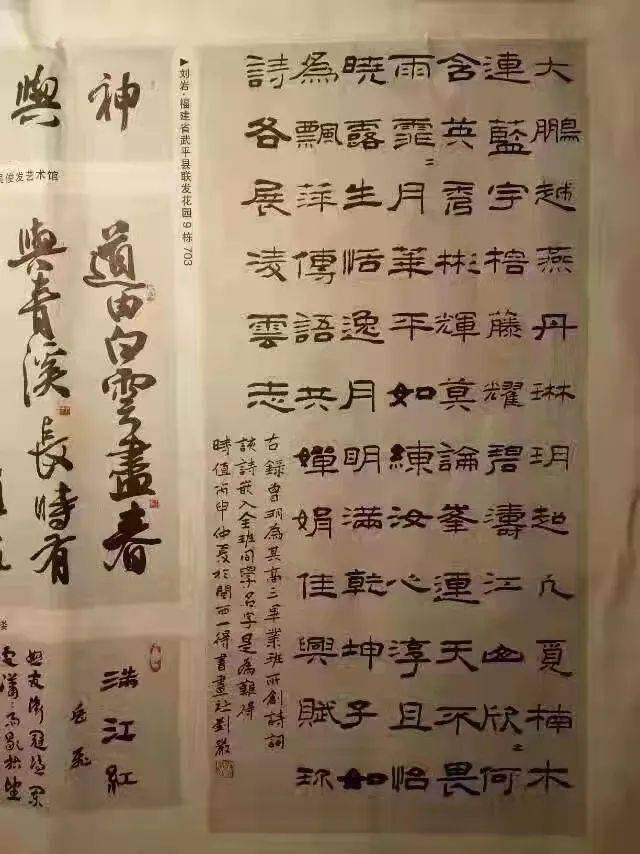 大鵬越燕丹琳玥起凡覓楠木
連藍宇榕藤耀碧濤江山欣〻何
含英秀彬輝莫論峯運天不畏
雨霏〻月華平如練汝心淳且怡
曉露生恬逸月明滿乾坤子如
為飄萍傳語共嬋娟佳興賦
詩各展凌雲志
右錄曾羽為其高三畢業班所創詩詞
該詩嵌入全班同學名字是為難得
時值丙申仲夏於閩西一得書畫社劉岩
▶刘岩·福建省武平县联发花园9栋703
神
與
俊发艺术馆
道由白雲盡春
與青溪長時有
滿江紅
岳飛